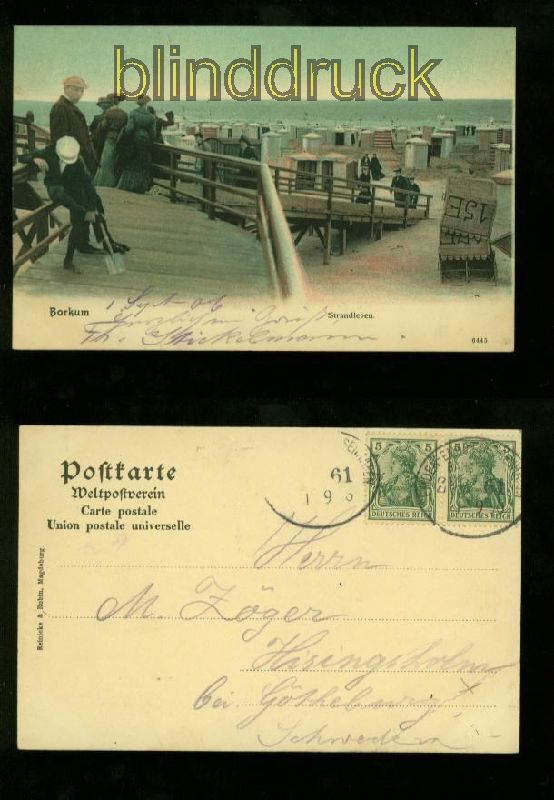 blinddruck
15E
Borkum
1 Sept 06
Herzlichen Gruß
Strandleben.
Th. Stickelmann
6445
Postkarte
Weltpostverein
Carte postale
Union postale universelle
Reinicke & Rubin, Magdeburg.
61
1 9 6
5 5 5 5
DEUTSCHES REICH DEUTSCHES REICH
Herrn
M. Zöger
Hisingsholm
bei Götheburg
Schweden